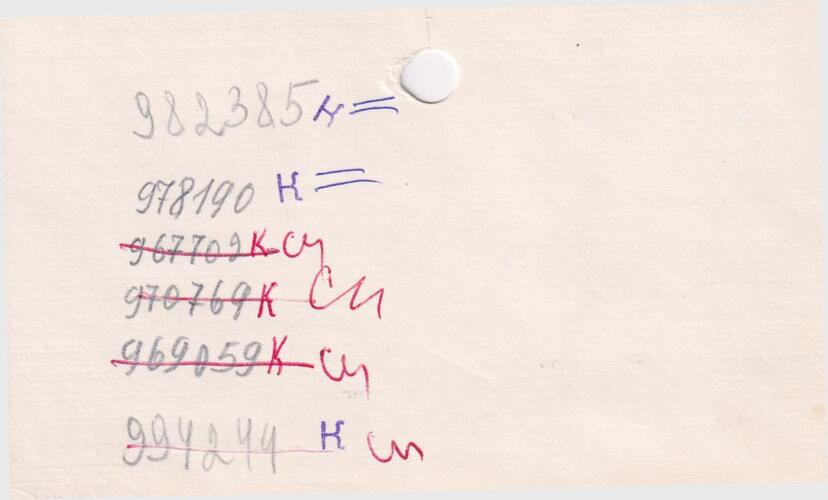 982385 К =
978190 К =
967702 К сп
970769 К сп
969059 К сп
994244 К сп